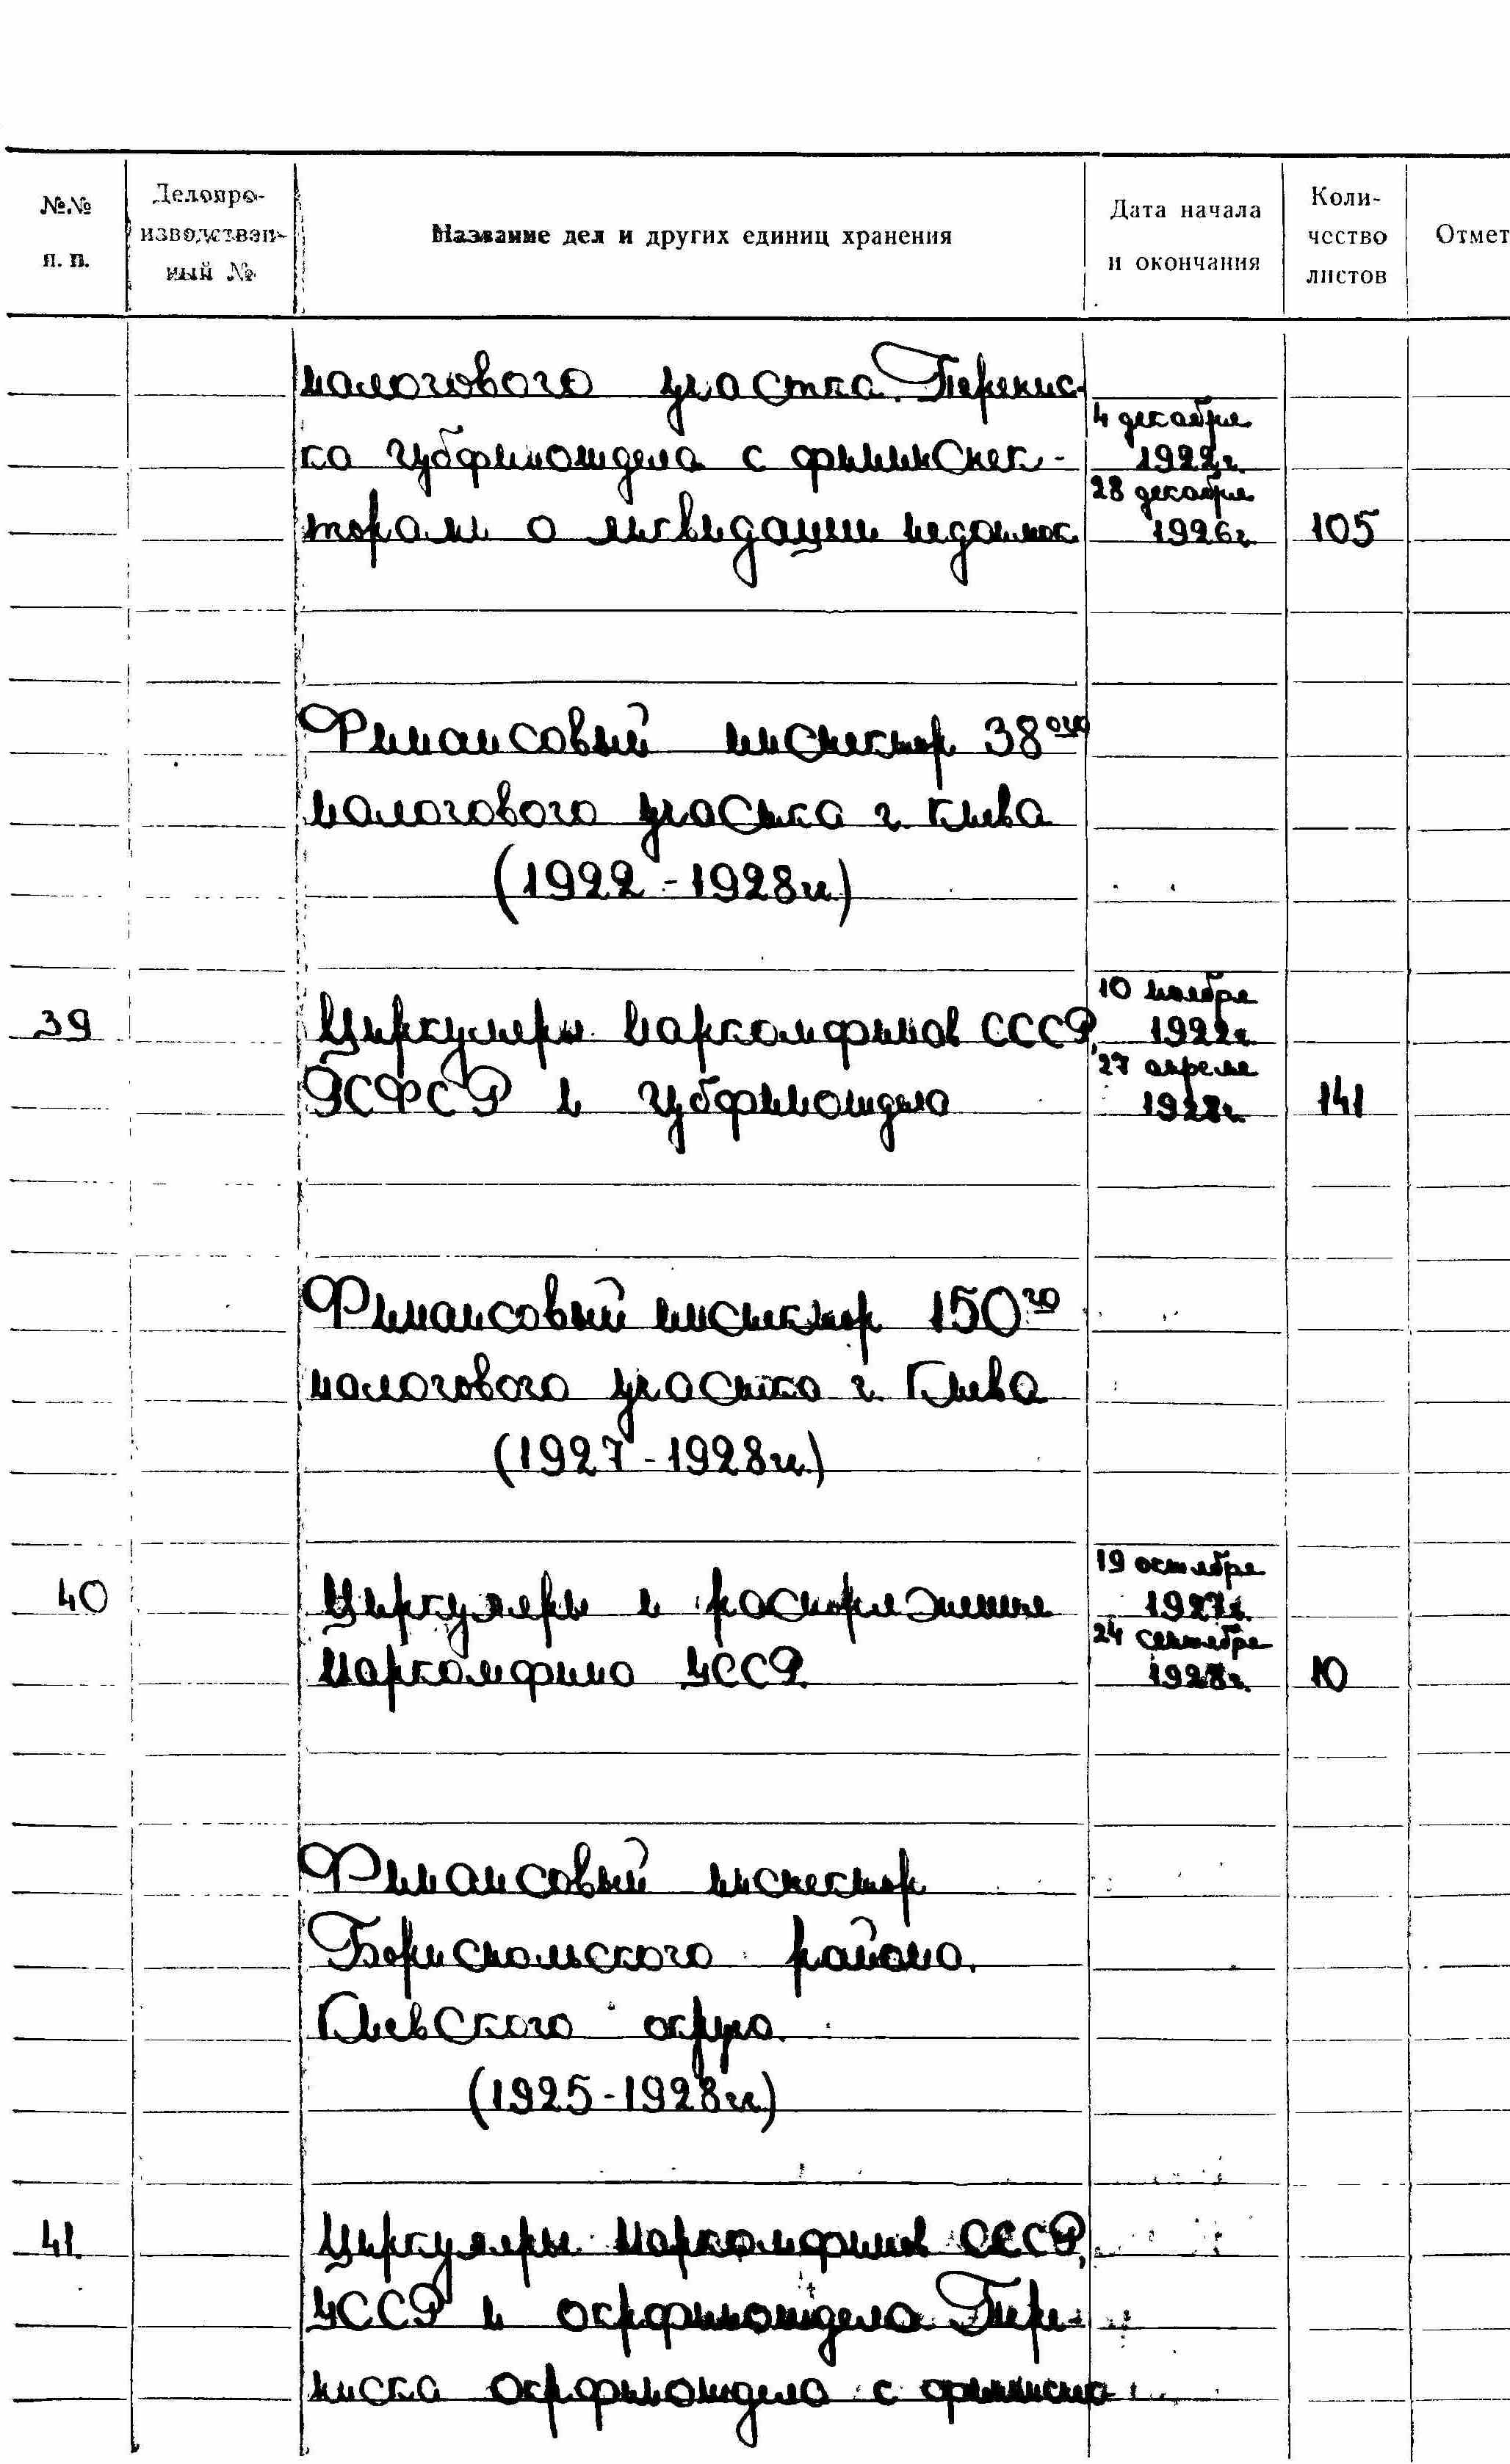 №№ п. п.
Делопроизводственный №
Название дел и других единиц хранения
Дата начала и окончания
Количество листов
Отмет
налогового участка. Перепис-
ка губфинотдела с фининспек-
торами о ликвидации недоимок
4 декабря
1922г.
28 декабря
1926г.
105
Финансовый инспектор 38ого
налогового участка г. Киева
(1922-1928гг.)
39
Циркуляры наркомфинов СССР,
РСФСР и губфинотдела
10 ноября
1922г.
27 апреля
1928г.
141
Финансовый инспектор 150го
налогового участка г. Киева
(1927-1928гг.)
40
Циркуляры и распоряжения
Наркомфина УССР
19 октября
1927г.
24 сентября
1928г.
10
Финансовый инспектор
Бориспольского района
Киевского округа
(1925-1928гг.)
41.
Циркуляры Наркомфинов СССР,
УССР и окрфинотдела. Пере-
писка окрфинотдела с